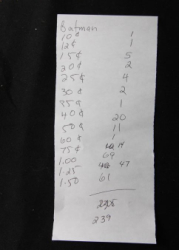 batman
10¢ 1
12¢ 1
15¢ 5
20¢ 2
25¢ 4
30¢ 2
35¢ 1
40¢ 20
50¢ 11
60¢ 1
75¢ 14
1.00 69
1.25 47
1.50 61
239